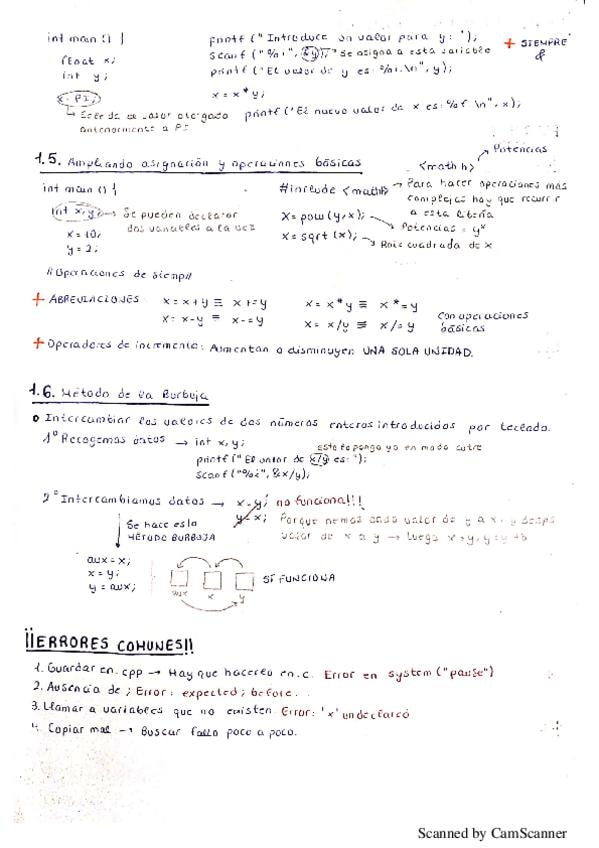 int main () {
float x;
int y;
x = PI;
Este da su valor otorgado
anteriormente a PI
printf ("Introduce un valor para y: ");
scanf ("%i", &y); Se asigna a esta variable + SIEMPRE &
printf ("El valor de y es: %i.\n", y);
x = x * y;
printf ("El nuevo valor de x es: %f \n", x);
1.5. Ampliando asignación y operaciones básicas
int main () {
int x, y; → Se pueden declarar
dos variables a la vez
x = 10;
y = 2;
Potencias
<math h>
#include <math> → Para hacer operaciones más
complejas hay que recurrir
a esta libría
x = pow (y, x); → Potencias = yˣ
x = sqrt (x); → Raíz cuadrada de x
//Operaciones de siemp//
+ ABREVIACIONES: x = x + y ≡ x += y x = x * y ≡ x *= y
x = x - y ≡ x -= y x = x / y ≡ x /= y
Con operaciones
básicas
+ Operadores de incremento: Aumentan o disminuyen UNA SOLA UNIDAD.
1.6. Método de la Burbuja
o Intercambiar los valores de dos números enteros introducidos por teclado.
1º Recogemos datos → int x, y;
este lo pongo yo en modo cutre
printf ("El valor de x/y es: ");
scanf ("%i", &x/y);
2º Intercambiamos datos → x = y; no funciona!!!
y = x; Porque hemos dado valor de y a x, y desps
valor de x a y → luego
Se hace es la
MÉTODO BURBUJA
aux = x;
x = y;
y = aux;
aux x y
SÍ FUNCIONA
¡¡ERRORES COMUNES!!
1. Guardar en .cpp → Hay que hacerlo en .c. Error en system ("pause")
2. Ausencia de ; Error: expected ; before...
3. Llamar a variables que no existen. Error: 'x' undeclared
4. Copiar mal → Buscar fallo poco a poco.
Scanned by CamScanner